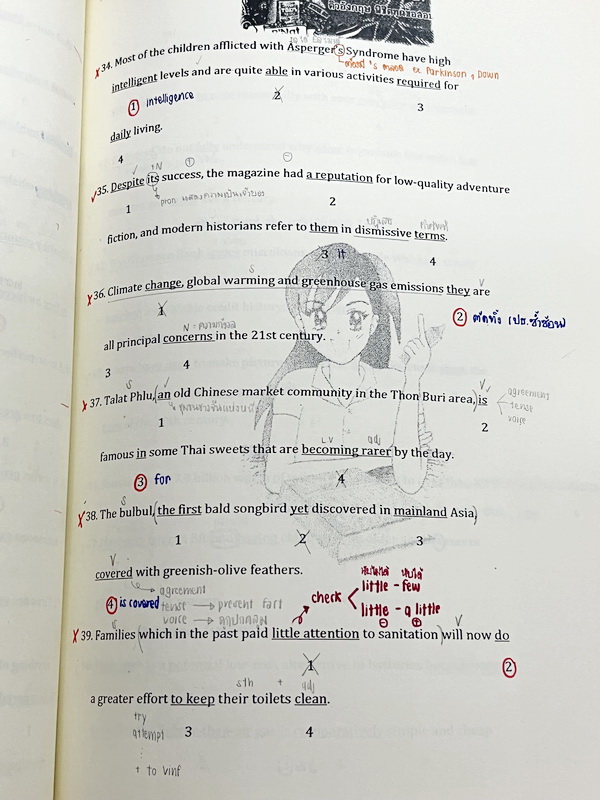 34. Most of the children afflicted with Asperger's Syndrome have high
เติม 's เสมอ ex Parkinson , Down
intelligent levels and are quite able in various activities required for
① intelligence 2 3
daily living.
4
+N
35. Despite its success, the magazine had a reputation for low-quality adventure
1 pron แสดงความเป็นเจ้าของ 2
fiction, and modern historians refer to them in dismissive terms.
3 it 4
S V
36. Climate change, global warming and greenhouse gas emissions they are
1 ② ตัดทิ้ง (ปธ.ซ้ำซ้อน)
all principal concerns in the 21st century.
3 4
S V
37. Talat Phlu, an old Chinese market community in the Thon Buri area, is
agreement
tense
voice
1 2
L.V adj
famous in some Thai sweets that are becoming rarer by the day.
③ for 4
S
38. The bulbul, the first bald songbird yet discovered in mainland Asia,
1 2 3
V
covered with greenish-olive feathers.
④ is covered
agreement
tense → present fact
voice → ถูกปกคลุม
check
นับไม่ได้ นับได้
little - few
little - a little
⊖ ⊕
S V
39. Families which in the past paid little attention to sanitation will now do
1 ②
sth + adj
a greater effort to keep their toilets clean.
try
attempt 3 4
+ to Vinf